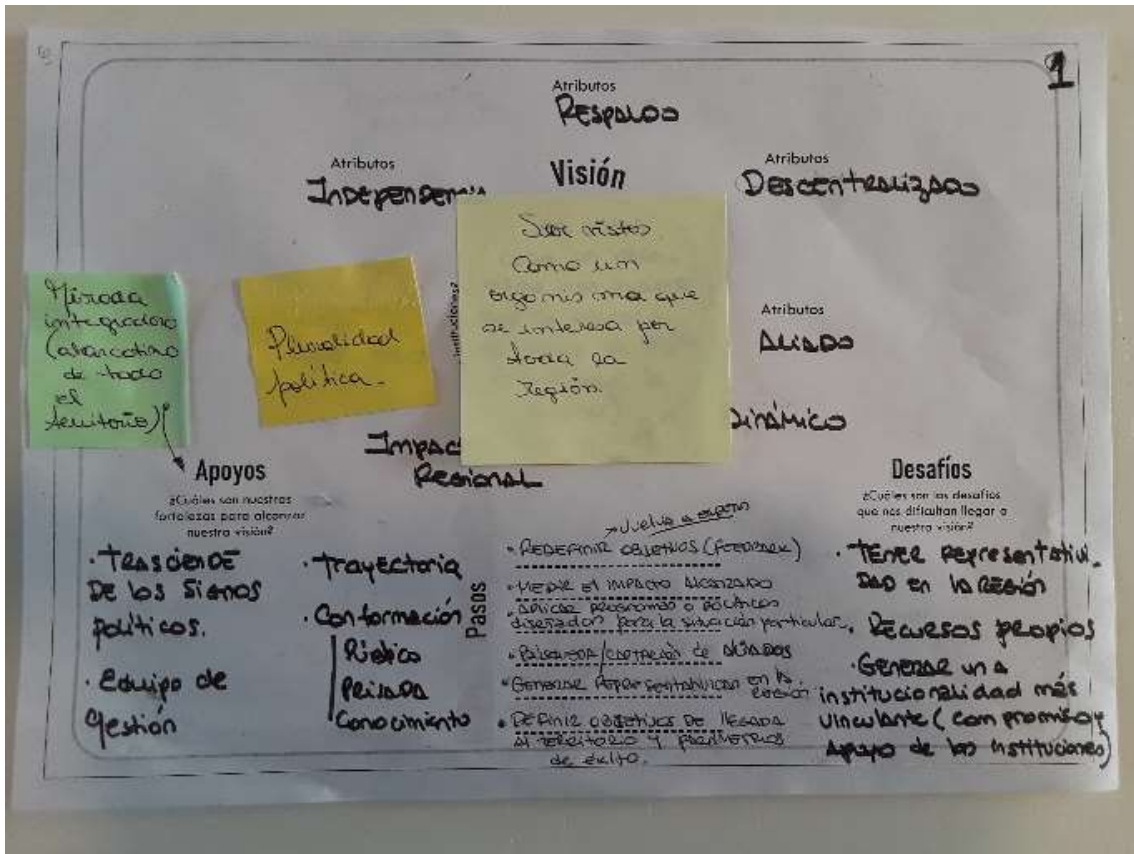 1
Atributos
RESPALDO
Atributos
INDEPENDENCIA
Visión
Atributos
DESCENTRALIZADO
Ser vistos
como un
organismo que
se interesa por
toda la
Región.
Mirada
integradora
(abarcativo
de todo
el
territorio)
Pluralidad
política.
instituciones?
Atributos
ALIADO
DINÁMICO
IMPAC
REGIONAL
Apoyos
¿Cuáles son nuestras
fortalezas para alcanzar
nuestra visión?
· TRASCIENDE
DE los SIGNOS
políticos.
· EQUIPO de
gestión
· Trayectoria
· Conformación
Público
PRIVADA
Conocimiento
Pasos
→ Vuelve a
• REDEFINIR OBJETIVOS (FEEDBACK)
• MEDIR EL IMPACTO ALCANZADO
• APLICAR PROGRAMAS O POLÍTICAS
diseñadas para la situación particular.
• BÚSQUEDA/CAPTACIÓN de ALIADOS
• GENERAR REPRESENTATIVIDAD EN LA
REGIÓN
• DEFINIR OBJETIVOS DE LLEGADA
AL TERRITORIO Y PARÁMETROS
de éxito.
Desafíos
¿Cuáles son los desafíos
que nos dificultan llegar a
nuestra visión?
· TENER REPRESENTATIVI-
DAD EN la REGIÓN
· RECURSOS PROPIOS
· GENERAR UNA
institucionalidad más
vinculante (compromiso y
Apoyo de las instituciones)